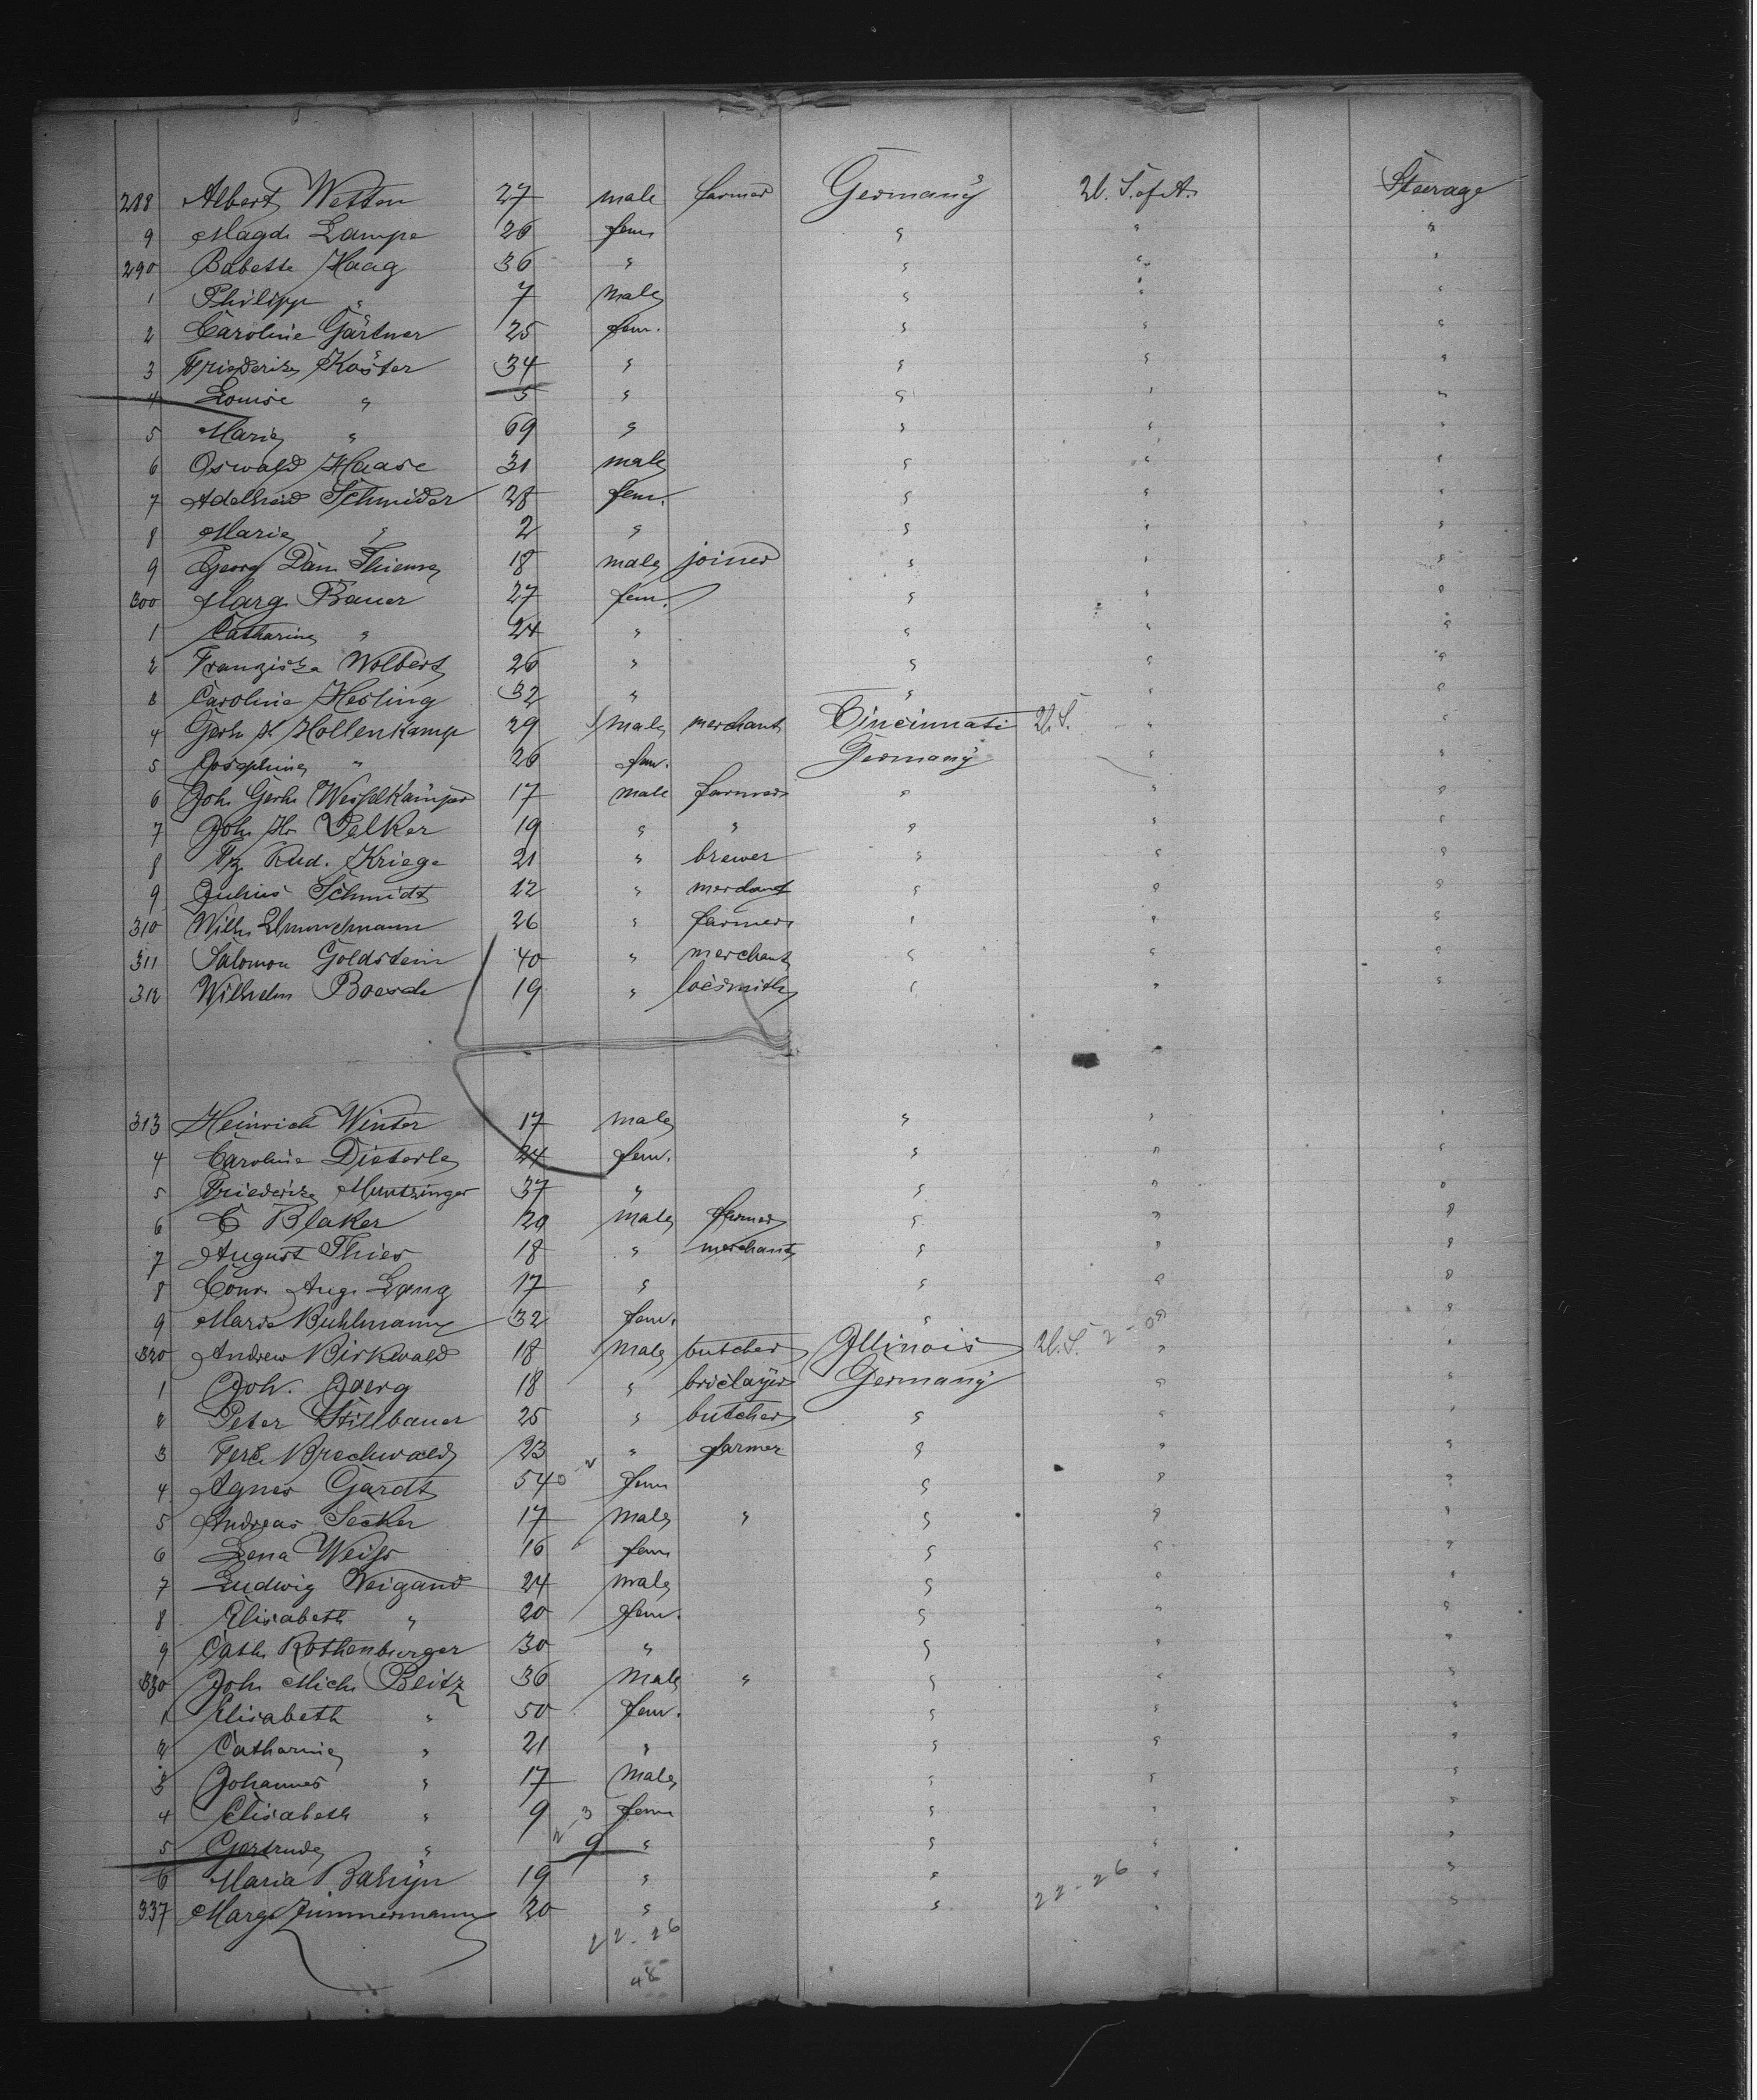 288 Albert Wetten 27 male farmer Germany U. S. of A. Steerage
9 Magd. Lampe 26 fem " " "
290 Babette Haag 36 " " " "
1 Philipp " 7 male " " "
2 Caroline Gärtner 25 fem. " " "
3 Friederike Köster 34 " " " "
4 Louise " 5 " " " "
5 Marie " 69 " " " "
6 Oswald Haase 31 male " " "
7 Adelheid Schmider 28 fem. " " "
8 Marie " 2 " " " "
9 Georg Dan. Thieme 18 male joiner " " "
300 Marg. Bauer 27 fem. " " "
1 Catharine " 24 " " " "
2 Franziska Wolbert 26 " " " "
3 Caroline Hesling 32 " " " "
4 Gerh. H. Hollenkamp 29 male merchant Cincinnati U. S. " "
5 Josephine " 26 fem. Germany " "
6 Joh. Gerh. 17 male farmer " " "
7 Joh. Hr. Velker 19 " " " " "
8 Fz. Rud. Kriege 21 " brewer " " "
9 Julius Schmidt 22 " merchant " " "
310 Wilh. 26 " farmer " " "
311 Salomon Goldstein 40 " merchant " " "
312 Wilhelm Boesch 19 " locsmith " " "
313 Heinrich Winter 17 male " " "
4 Caroline Dieterle 24 fem. " " "
5 Friederike Muntzinger 37 " " " "
6 C Blaker 20 male farmer " " "
7 August Thies 18 " merchant " " "
8 Conr. Aug. Lang 17 " " " "
9 Marie Buhlmann 32 fem. " " "
320 Andrew Birkwald 18 male butcher Illinois U. S. " "
1 Joh. Joerg 18 " briclayer Germany " "
2 Peter Stillbauer 25 " butcher " " "
3 Brechwald 23 " farmer " " "
4 Agnes Gardt 54 fem " " "
5 Andreas Secker 17 male " " " "
6 Lena Weiss 16 fem " " "
7 Ludwig Weigand 24 male " " "
8 Elisabeth " 20 fem. " " "
9 Cath. Rothenburger 30 " " " "
330 Joh. Mich. Beitz 36 male " " " "
1 Elisabeth " 50 fem. " " "
2 Catharine " 21 " " " "
3 Johannes " 17 male " " "
4 Elisabeth " 9 fem " " "
5 Gertrude " 9 " " " "
6 Maria 19 " " 22-26 " "
337 Marg. Zimmermann 20 " " " "
22-26
48